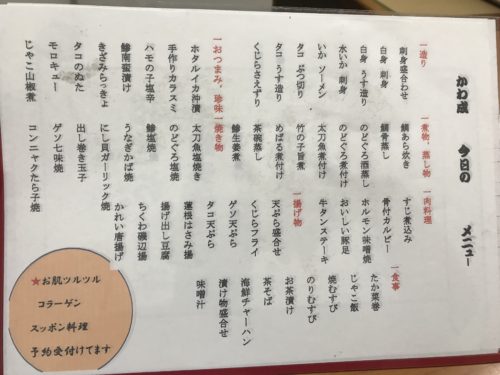 かわ成 今日の メニュー
一造り
刺身盛合わせ
白身 刺身
白身 うす造り
水いか 刺身
いか ソーメン
タコ ぶつ切り
タコ うす造り
くじらさえずり
一おつまみ、珍味
ホタルイカ沖漬
手作りカラスミ
ハモの子塩辛
鯵南蛮漬け
きざみらっきょ
タコのぬた
モロキュー
じゃこ山椒煮
一煮物、蒸し物
鯛あら炊き
鯛骨蒸し
のどぐろ酒蒸し
のどぐろ煮付け
太刀魚煮付け
竹の子旨煮
めばる煮付け
茶碗蒸し
鯵生姜煮
一焼き物
太刀魚塩焼き
のどぐろ塩焼
鯵塩焼
うなぎかば焼
にし貝ガーリック焼
出し巻き玉子
ゲソ七味焼
コンニャクたら子焼
一肉料理
すじ煮込み
骨付カルビー
ホルモン味噌焼
おいしい豚足
牛タンステーキ
一揚げ物
天ぷら盛合せ
くじらフライ
ゲソ天ぷら
タコ天ぷら
蓮根はさみ揚
揚げ出し豆腐
ちくわ磯辺揚
かれい唐揚げ
一食事
たか菜巻
じゃこ飯
焼むすび
のりむすび
お茶漬け
茶そば
海鮮チャーハン
漬け物盛合せ
味噌汁
★お肌ツルツル
コラーゲン
スッポン料理
予約受付けてます